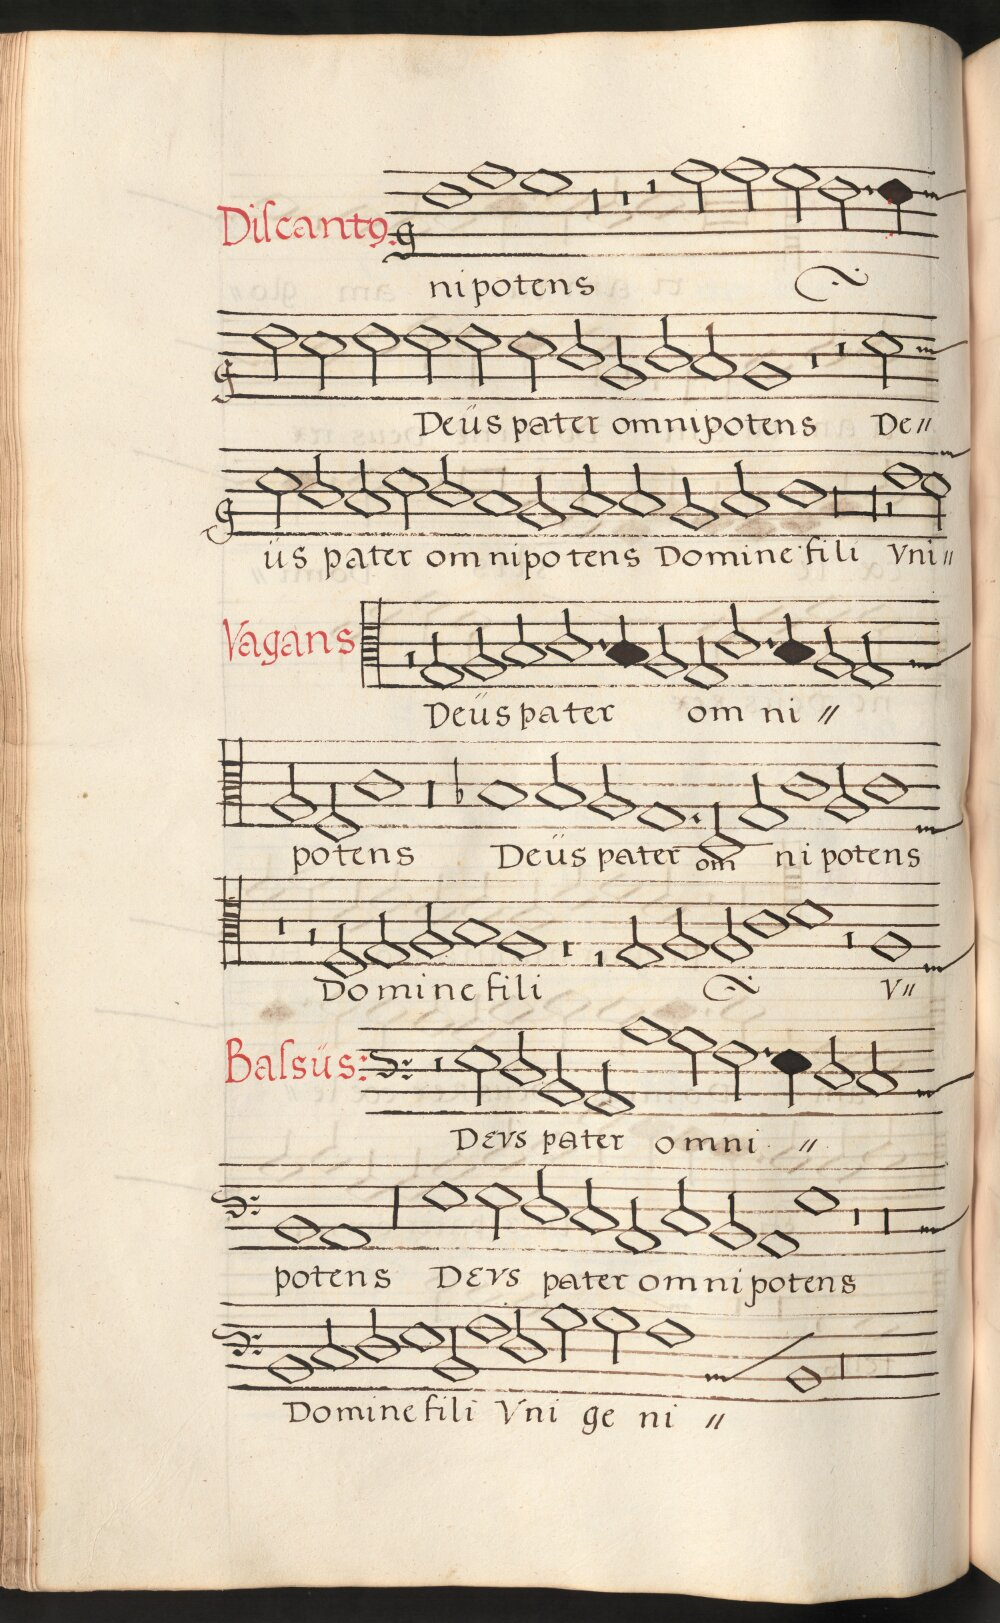 Diſcantꝯ:
nipotens
Deüs pater omnipotens De〃
üs pater omnipotens Domine fili Vni〃
Vagans
Deüs pater omni〃
potens Deüs pater om nipotens
Domine fili V〃
Baſsüs:
Deus pater omni〃
potens Deus pater omnipotens
Domine fili Vni ge ni〃